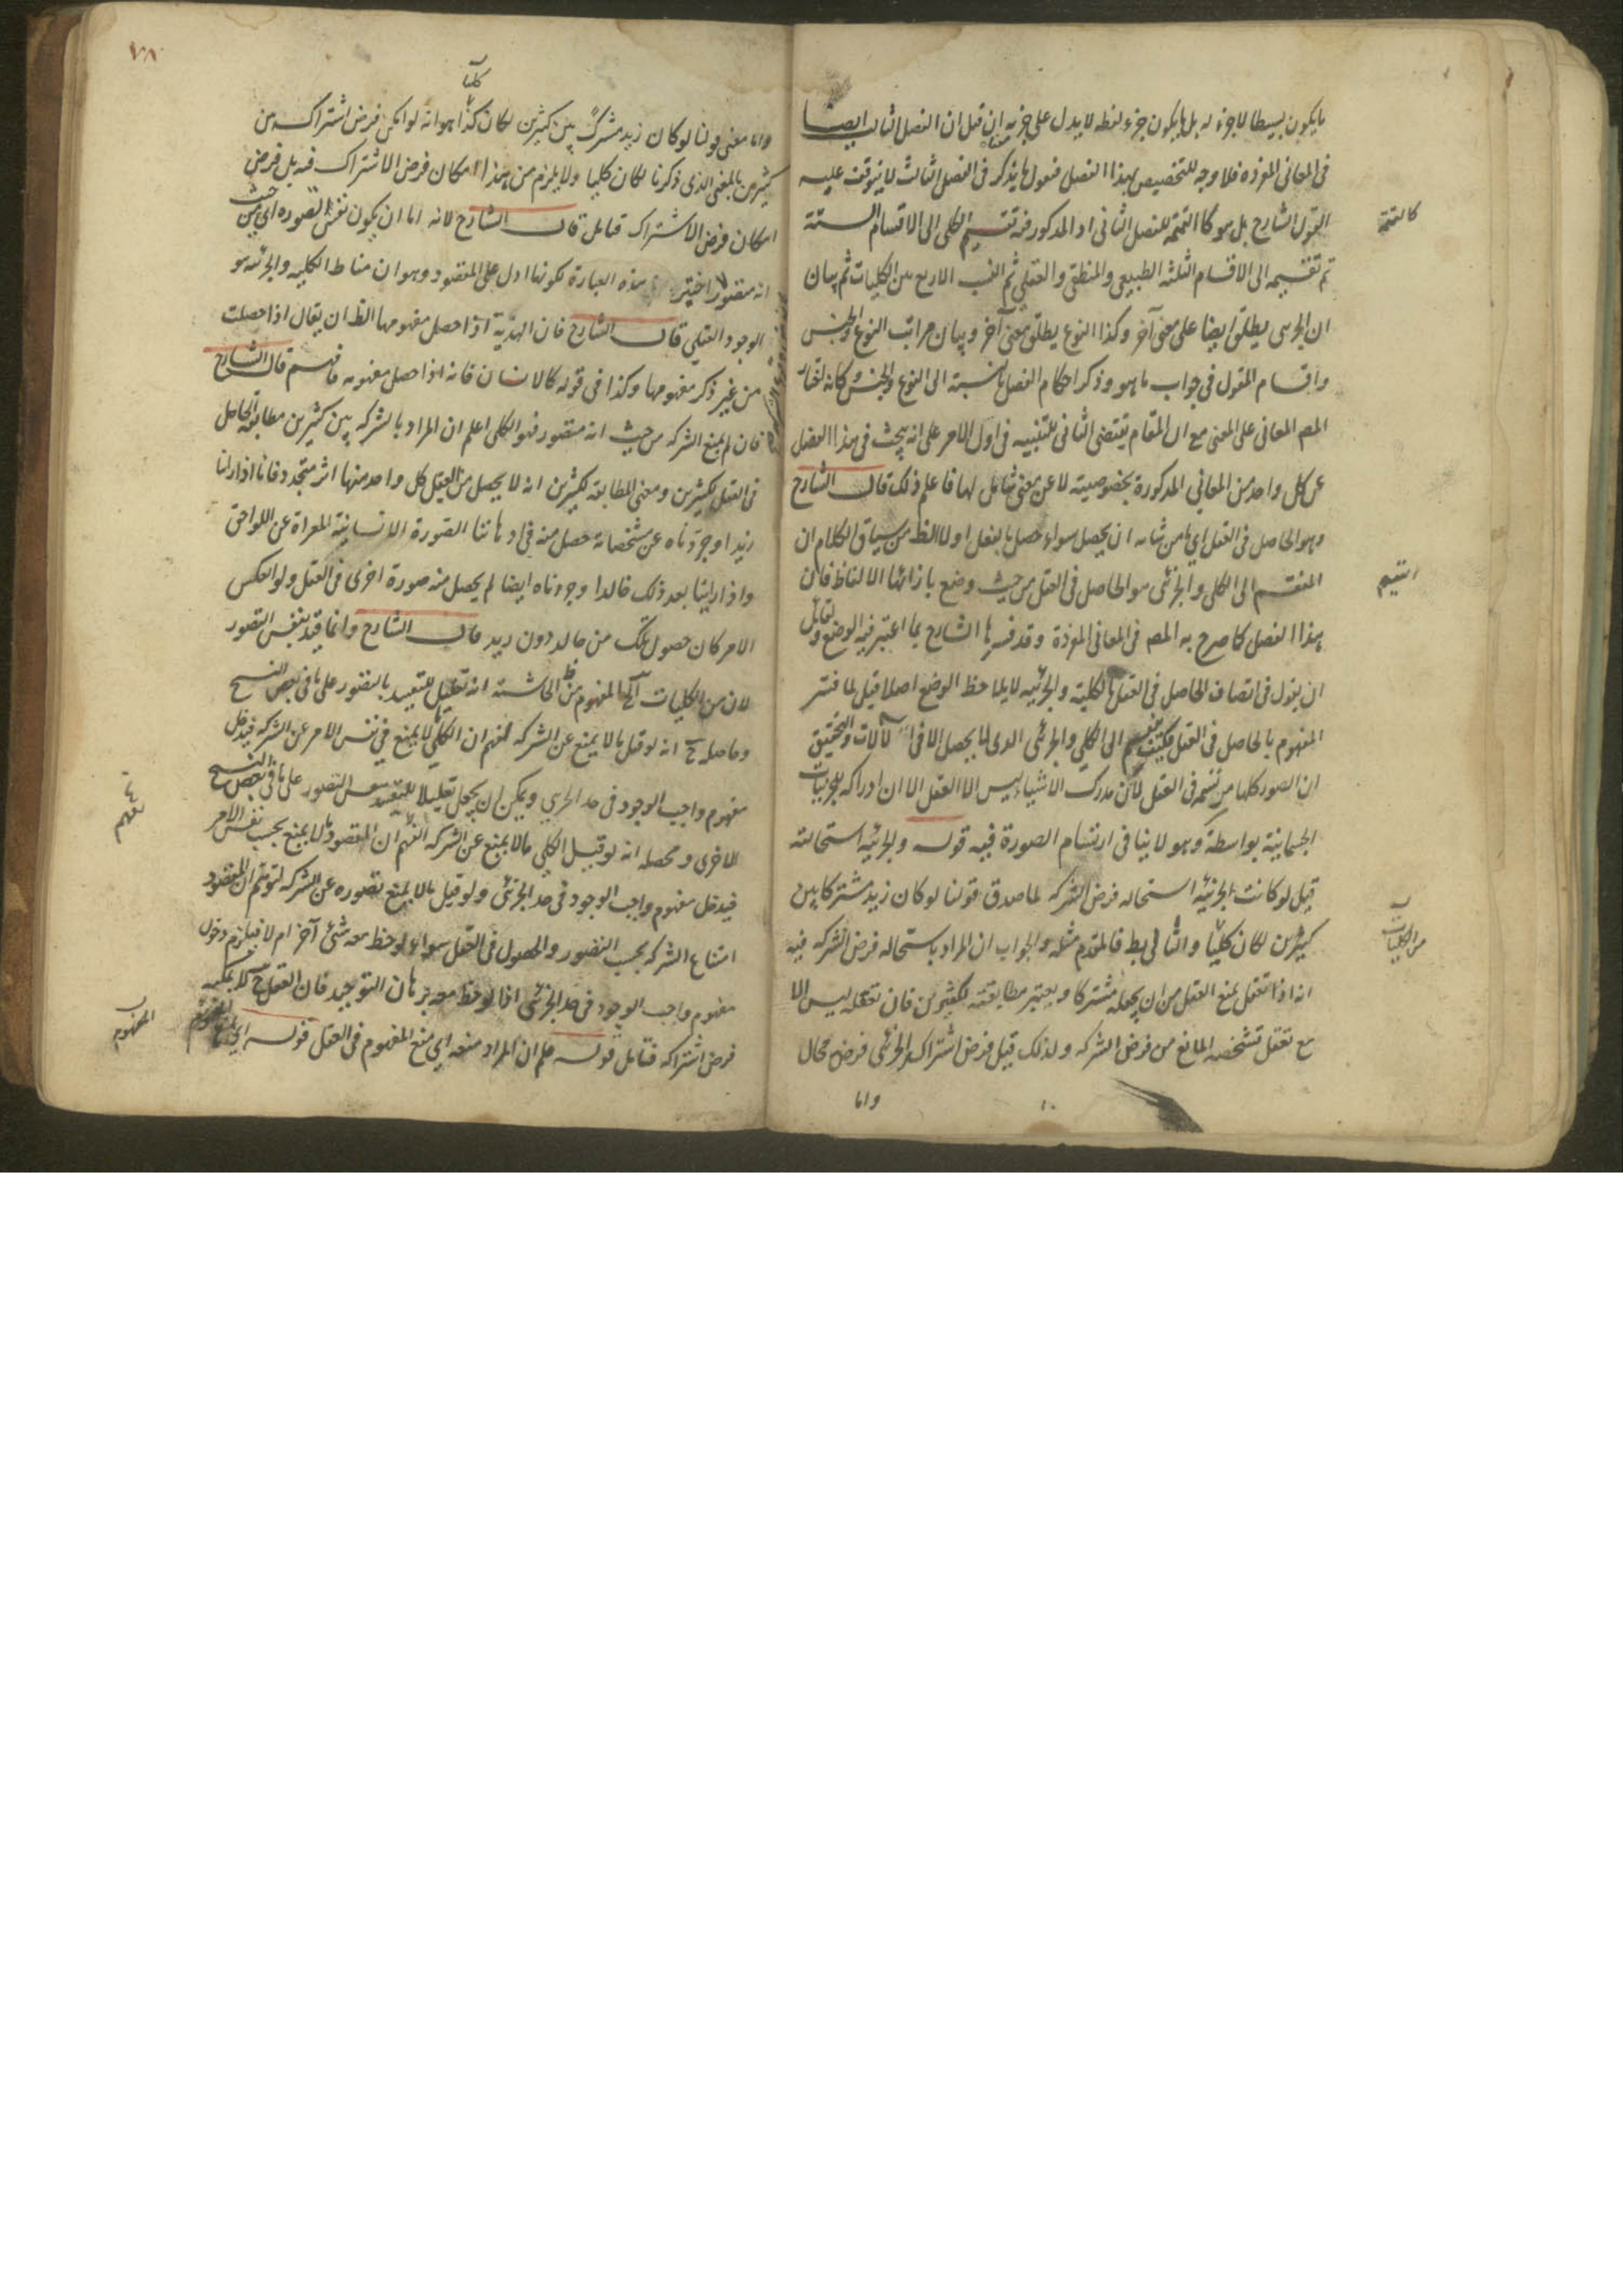 ما يكون بسيطا لا جزء له بل ما يكون جزء لفظه لا يدل على جزيه ان قيل ان الفصل الثالث ايضا
فى المعانى المفردة فلا وجه للتخصيص بهذا الفصل فنقول ما يذكر فى الفصل الثالث لا يتوقف عليه
القول الشارح بل هو كالتتمة للفصل الثانى اذ المذكور فيه تقسيم الكلى الى الاقسام الستة
كالتتمة
ثم تقسيمه الى الاقسام الثلثه الطبيعى والمنطقى والعقلى ثم النسب الاربع بين الكليات ثم بيان
ان الجزئى يطلق ايضا على معنى آخر وكذا النوع يطلق بمعنى آخر وبيان مراتب النوع والجنس
واقسام المقول فى جواب ما هو وذكر احكام الفصل بالنسبة الى النوع والجنس وكانه اختار
المص المعانى على المعنى مع ان المقام يقتضى الثانى للتنبيه فى اول الامر على انه يبحث فى هذا الفصل
عن كل واحد من المعانى المذكورة بخصوصيته لا عن معنى شامل لها فاعلم ذلك قال الشارح
وهو الحاصل فى العقل اى ما من شانه ان يحصل سواء حصل بالفعل او لا الظ من سياق الكلام ان
المنقسم الى الكلى والجزئى هو الحاصل فى العقل من حيث وضع بازائها الالفاظ فان
التقييم
هذا الفصل كما صرح به المص فى المعانى المفردة وقد فسرها الشارح بما اعتبر فيه الوضع ولقائل
ان يقول فى اتصاف الحاصل فى العقل بالكلية والجزئيه لا يلاحظ الوضع اصلا قيل لما فسر
المفهوم بالحاصل فى العقل فكيف ينقسم الى الكلى والجزئى الذى لا يحصل الا فى الآلات والتحقيق
ان الصور كلها مرتسمة فى العقل لان مدرك الاشياء ليس الا العقل الا ان ادراكه للجزئيات
الجسمانية بواسطة وهو لا ينافى ارتسام الصورة فيه قوله والجزئيه استحالته
قيل لو كانت الجزئيه استحاله فرض الشركه لما صدق قولنا لو كان زيد مشتركا بين
كثيرين لكان كليا والتالى بط فالمقدم مثله والجواب ان المراد باستحاله فرض الشركه فيه
من الكليات
انه اذا تعقل يمنع العقل من ان يجعله مشتركا ويعتبر مطابقته لكثيرين فان تعقله ليس الا
مع تعقل تشخصه المانع من فرض الشركه ولذلك قيل فرض اشتراك الجزئى فرض محال
واما
واما معنى قولنا لو كان زيد مشتركا بين كثيرين لكان كليا هو انه لو امكن فرض اشتراكه من
كليا
كثيرين بالمعنى الذى ذكرنا لكان كليا ولا يلزم من هذا امكان فرض الاشتراك فيه بل فرض
امكان فرض الاشتراك قابل قال الشارح لانه اما ان يكون نفس تصوره اى من حيث
انه متصور اختير هذه العبارة لكونها ادل على المقصود وهو ان مناط الكليه والجزئيه هو
الوجود العقلى قال الشارح فان الهذية اذا حصل مفهومها الظ ان يقال اذا حصلت
من غير ذكر مفهومها وكذا فى قوله كالانسان فانه اذا حصل مفهومه فافهم قال الشارح
فان لم يمنع الشركه من حيث انه متصور فهو الكلى اعلم ان المراد بالشركه بين كثيرين مطابقة الحاصل
فى العقل لكثيرين ومعنى المطابقه لكثيرين انه لا يحصل من العقل كل واحد منها اثر متجدد فانا اذا راينا
زيدا وجردناه عن مشخصاته حصل منه فى اذهاننا الصورة الانسانية المعراة عن اللواحق
واذا راينا بعد ذلك خالدا وجردناه ايضا لم يحصل منه صورة اخرى فى العقل ولو انعكس
الامر كان حصول تلك من خالد دون زيد قال الشارح وانما قيد بنفس التصور
لان من الكليات آلخ المفهوم من الحاشيته انه تعليل للتقييد بالتصور على ما فى بعض النسخ
وحاصله ح انه لو قيل ما لا يمنع عن الشركه لفهم ان الكلى ما لا يمنع فى نفس الامر عن الشركه فيدخل
مفهوم واجب الوجود فى حد الجزئى ويمكن ان يجعل تعليلا للتقييد بنفس التصور على ما فى بعض النسخ
الاخرى ومحصله انه لو قيل الكلى ما لا يمنع عن الشركه لفهم ان المقصود ما لا يمنع بحسب نفس الامر
فيدخل مفهوم واجب الوجود فى حد الجزئى ولو قيل ما لا يمنع تصوره عن الشركه لتوهم ان المقصود
امتناع الشركه بحسب التصور والحصول فى العقل سواء لوحظ معه شئ آخر ام لا فيلزم دخول
مفهوم واجب الوجود فى حد الجزئى اذا لوحظ معه برهان التوحيد فان العقل ح لا يمكنه
فرض اشتراكه فتامل قوله علم ان المراد منعه اى منع المفهوم فى العقل قوله اى
المفهوم